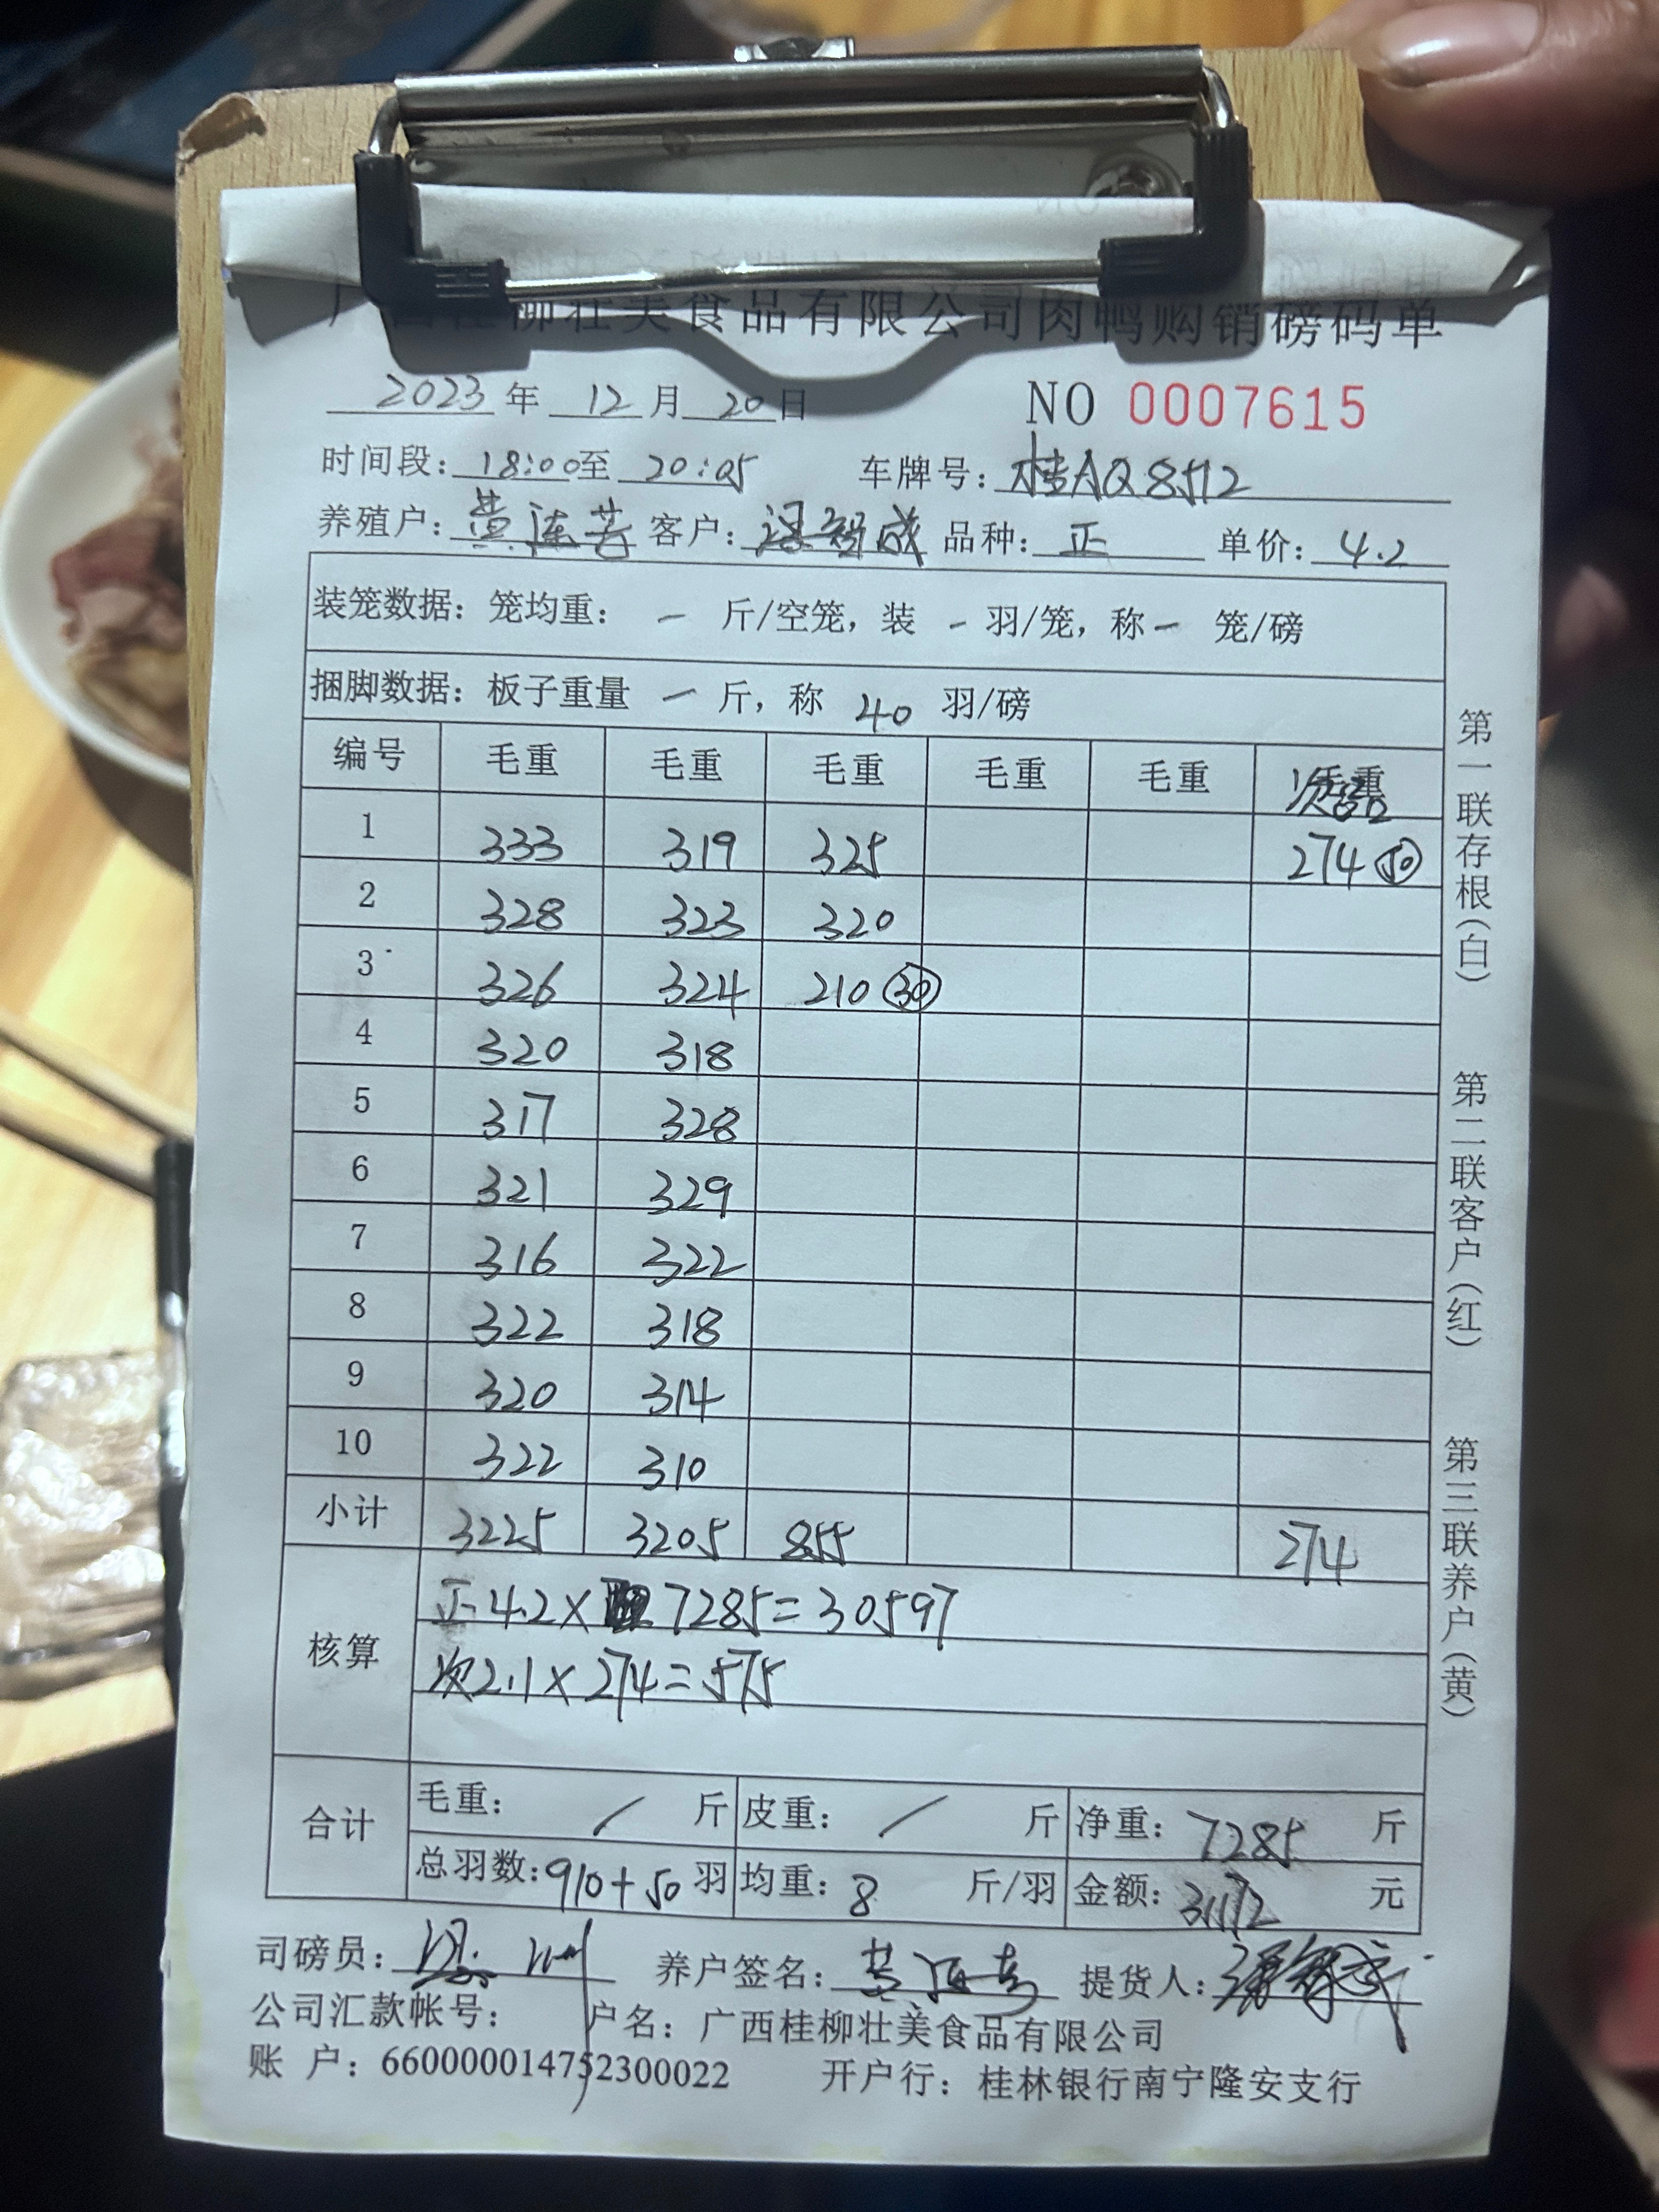 柳壮美食品有限公司肉鸭购销磅码单
2023年 12月 20日 NO 0007615
时间段: 18:00至 20:05 车牌号: 桂AQ8512
养殖户: 黄 客户: 成 品种: 正 单价: 4.2
装笼数据: 笼均重: — 斤/空笼, 装 - 羽/笼, 称 — 笼/磅
捆脚数据: 板子重量 — 斤, 称 40 羽/磅
编号 毛重 毛重 毛重 毛重 毛重
1 333 319 325 274 50
2 328 323 320
3 326 324 210 30
4 320 318
5 317 328
6 321 329
7 316 322
8 322 318
9 320 314
10 322 310
小计 3225 3205 855 274
核算 正 4.2×7285=30597
次2.1×274=575
合计 毛重: / 斤 皮重: / 斤 净重: 7285 斤
总羽数: 910+50 羽 均重: 8 斤/羽 金额: 31172 元
司磅员: 养户签名: 提货人:
公司汇款帐号: 户名: 广西桂柳壮美食品有限公司
账 户: 660000014752300022 开户行: 桂林银行南宁隆安支行
第一联存根(白)
第二联客户(红)
第三联养户(黄)